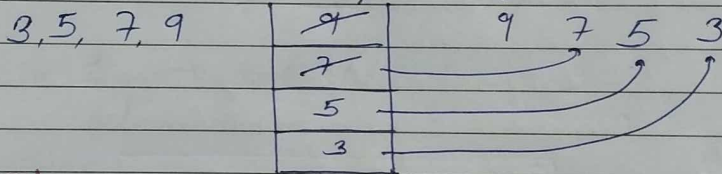 3, 5, 7, 9 9 9 7 5 3
7
5
3